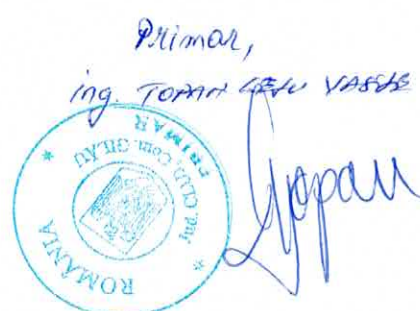 Primar,
ing. TOPAN GELU VASILE
ROMÂNIA
Jud. CLUJ, Com. GILĂU
PRIMAR
Topan